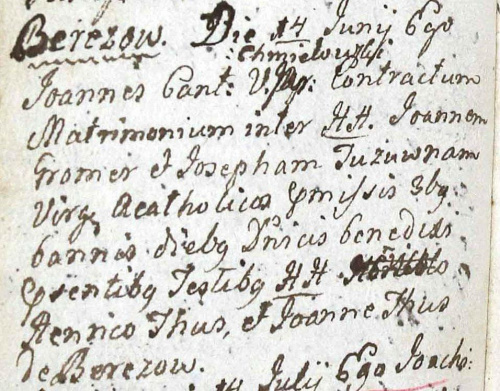 Berezow. Die 14 Junij Ego
Chmielowski
Joannes Cant: V. Contractum
Matrimonium inter HH. Joannem
Gromer et Josepham Tuzuwnam
Virg. Acatholicos pmissis 3bq
bannis diebq Dnicis benedixi
psentibq Testibq HH
Henrico Thus, et Joanne Thus
de Berezow.
14 Julij Ego Joach: